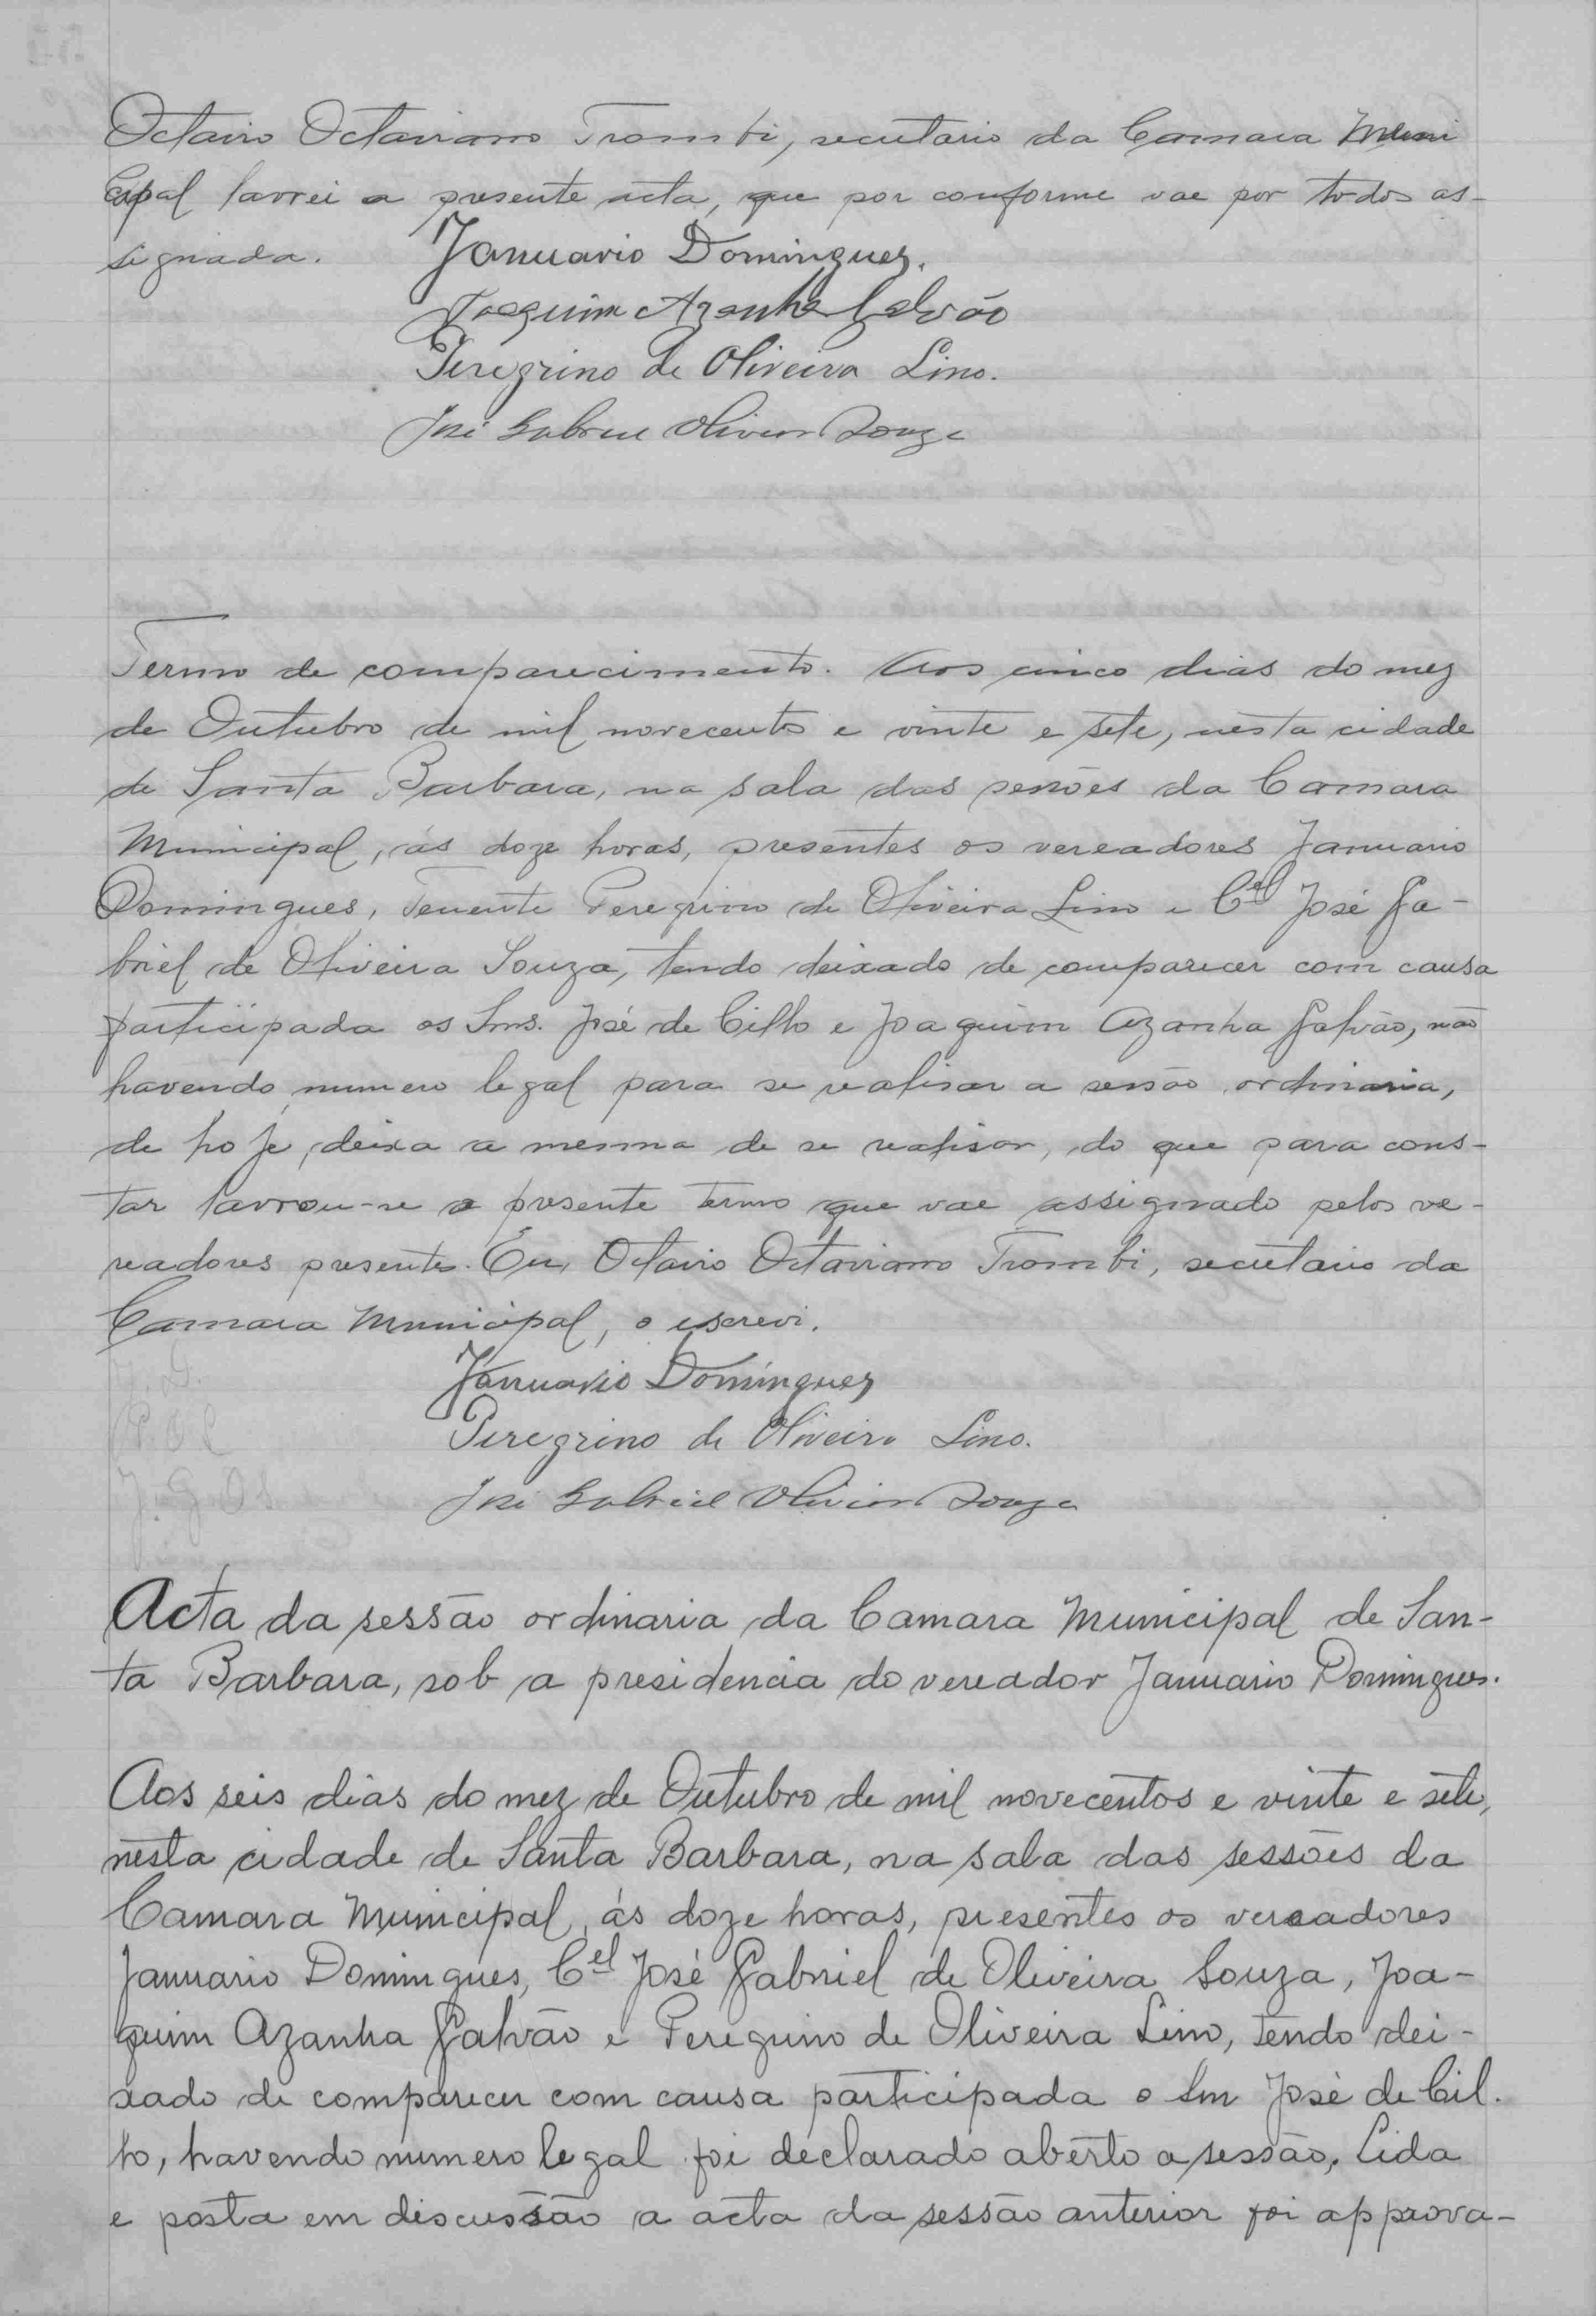 Octavio Octaviano Trombi, secretario da Camara Muni
cipal lavrei a presente acta, que por conforme vae por todos as-
signada. Januario Domingues.
Joaquim Azanha Galvão
Peregrino de Oliveira Lino.
José Gabriel Oliveira Souza
Termo de comparecimento. Aos cinco dias do mez
de Outubro de mil novecentos e vinte e sete, nesta cidade
de Santa Barbara, na sala das sessões da Camara
Municipal, ás doze horas, presentes os vereadores Januario
Domingues, Tenente Peregrino de Oliveira Lino e Cel José Ga-
briel de Oliveira Souza, tendo deixado de comparecer com causa
participada os Snrs. José de Cillo e Joaquim Azanha Galvão, não
havendo numero legal para se realisar a sessão ordinaria,
de hoje, deixa a mesma de se realisar, do que para cons-
tar lavrou-se o presente termo que vae assignado pelos ve-
readores presentes. Eu, Octavio Octaviano Trombi, secretario da
Camara Municipal, o escrevi.
J. D.
Januario Domingues
P. O L
Peregrino de Oliveira Lino.
J. G. O S
José Gabriel Oliveira Souza
Acta da sessão ordinaria da Camara Municipal de San-
ta Barbara, sob a presidencia do vereador Januario Domingues.
Aos seis dias do mez de Outubro de mil novecentos e vinte e sete,
nesta cidade de Santa Barbara, na sala das sessões da
Camara Municipal, ás doze horas, presentes os vereadores
Januario Domingues, Cel José Gabriel de Oliveira Souza, Joa-
quim Azanha Galvão e Peregrino de Oliveira Lino, tendo dei-
xado de comparecer com causa participada o Snr José de Cil-
lo, havendo numero legal foi declarado aberto a sessão. Lida
e posta em discussão a acta da sessão anterior foi approva-